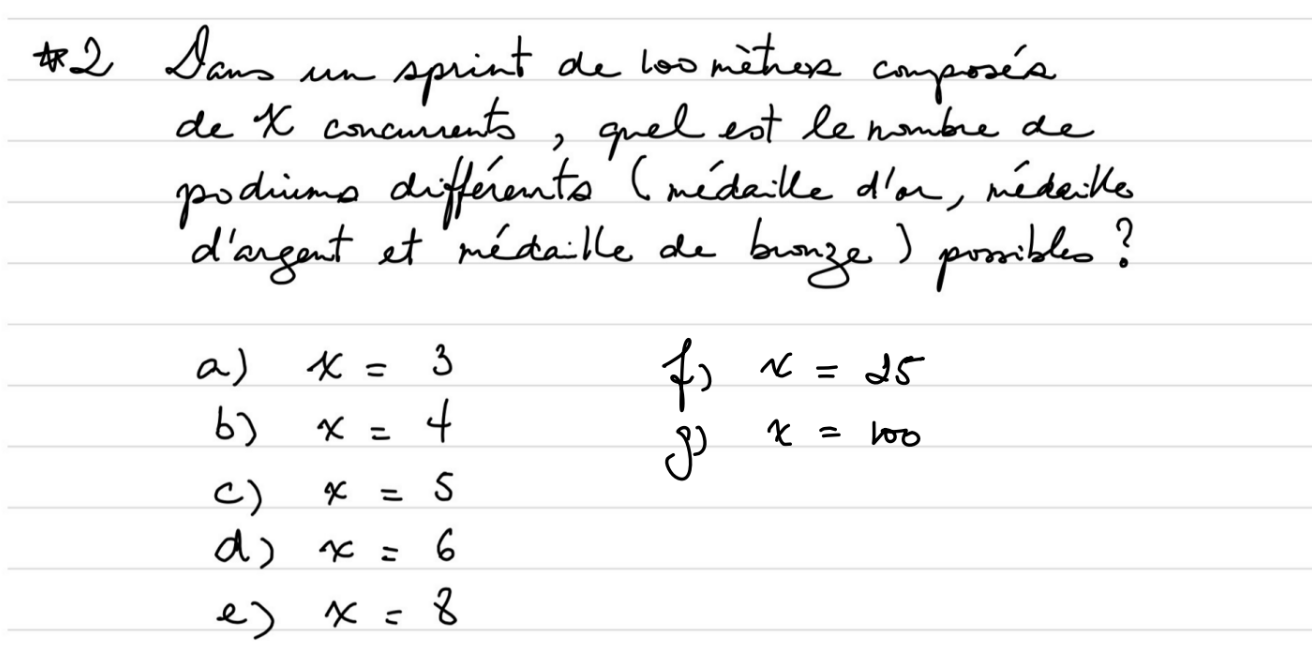 *2 Dans un sprint de 100 mètres composés
de x concurrents, quel est le nombre de
podiums différents (médaille d'or, médaille
d'argent et médaille de bronze) possibles?
a) x = 3
b) x = 4
c) x = 5
d) x = 6
e) x = 8
f) x = 25
g) x = 100